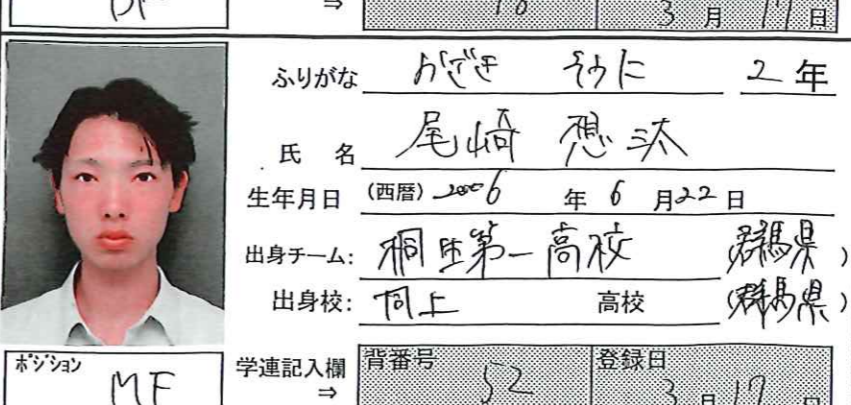 ⇒ 18 3月17日
ふりがな おざき そうた 2年
氏 名 尾﨑 想汰
生年月日 (西暦) 2006年 6月22日
出身チーム: 桐生第一高校 群馬県)
出身校: 同上 高校 (群馬県)
ポジション MF 学連記入欄 ⇒ 背番号 52 登録日 3月17日